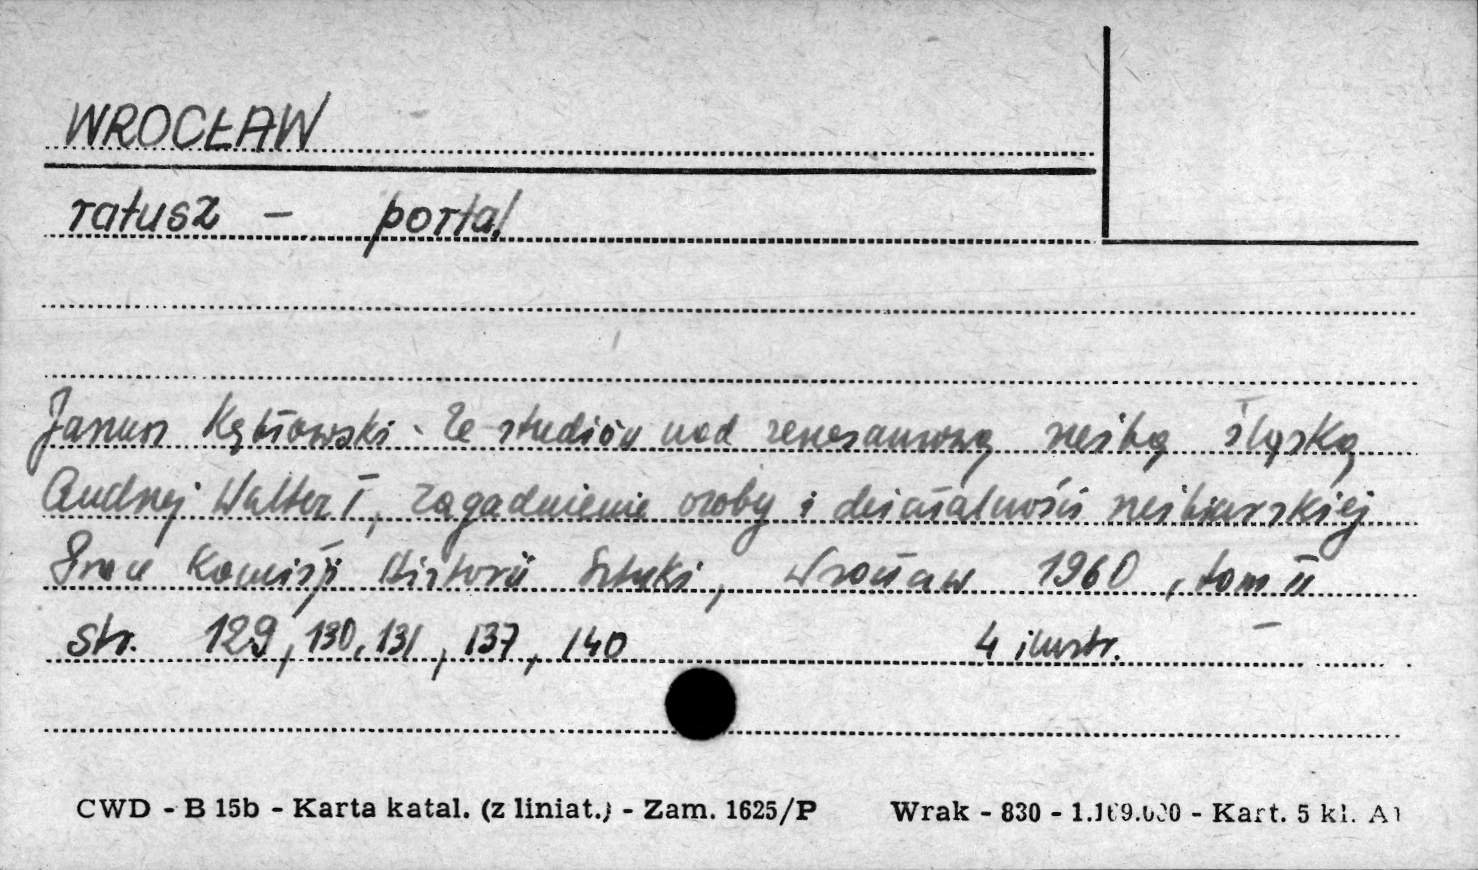 WROCŁAW
ratusz - portal
Janusz Kębłowski - Ze studiów nad renesansową rzeźbą śląską
Andrzej Walter I, zagadnienie osoby i działalności rzeźbiarskiej
Prace Komisji Historii Sztuki, Wrocław 1960, tom II
str. 129, 130, 131, 137, 140 4 ilustr.
CWD - B 15b - Karta katal. (z liniat.) - Zam. 1625/P Wrak - 830 - 1.169.000 - Kart. 5 kl. A1